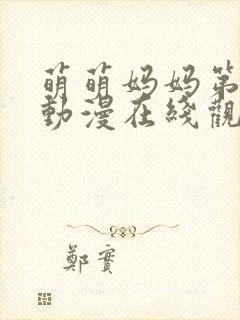 萌萌妈妈第
動漫在綫觀
鄭實